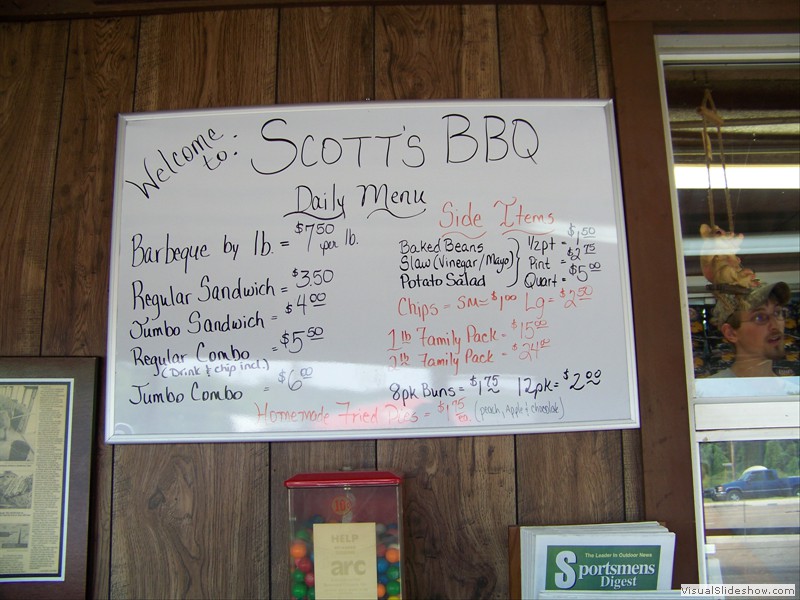 Welcome to: SCOTT'S BBQ
Daily Menu
Barbeque by lb. = $7.50 per lb.
Regular Sandwich = $3.50
Jumbo Sandwich = $4.00
Regular Combo = $5.50
(Drink & chip incl.)
Jumbo Combo = $6.00
Side Items
Baked Beans
Slaw (Vinegar/Mayo)
Potato Salad
1/2pt = $1.50
Pint = $2.75
Quart = $5.00
Chips = Sm = $1.00 Lg = $2.50
1 lb Family Pack = $15.00
2 lb Family Pack = $24.00
8pk Buns = $1.75 12pk = $2.00
Homemade Fried Pies = $1.75 ea. (peach, apple & chocolate)
HELP
arc
The Leader in Outdoor News
Sportsmens
Digest
VisualSlideshow.com